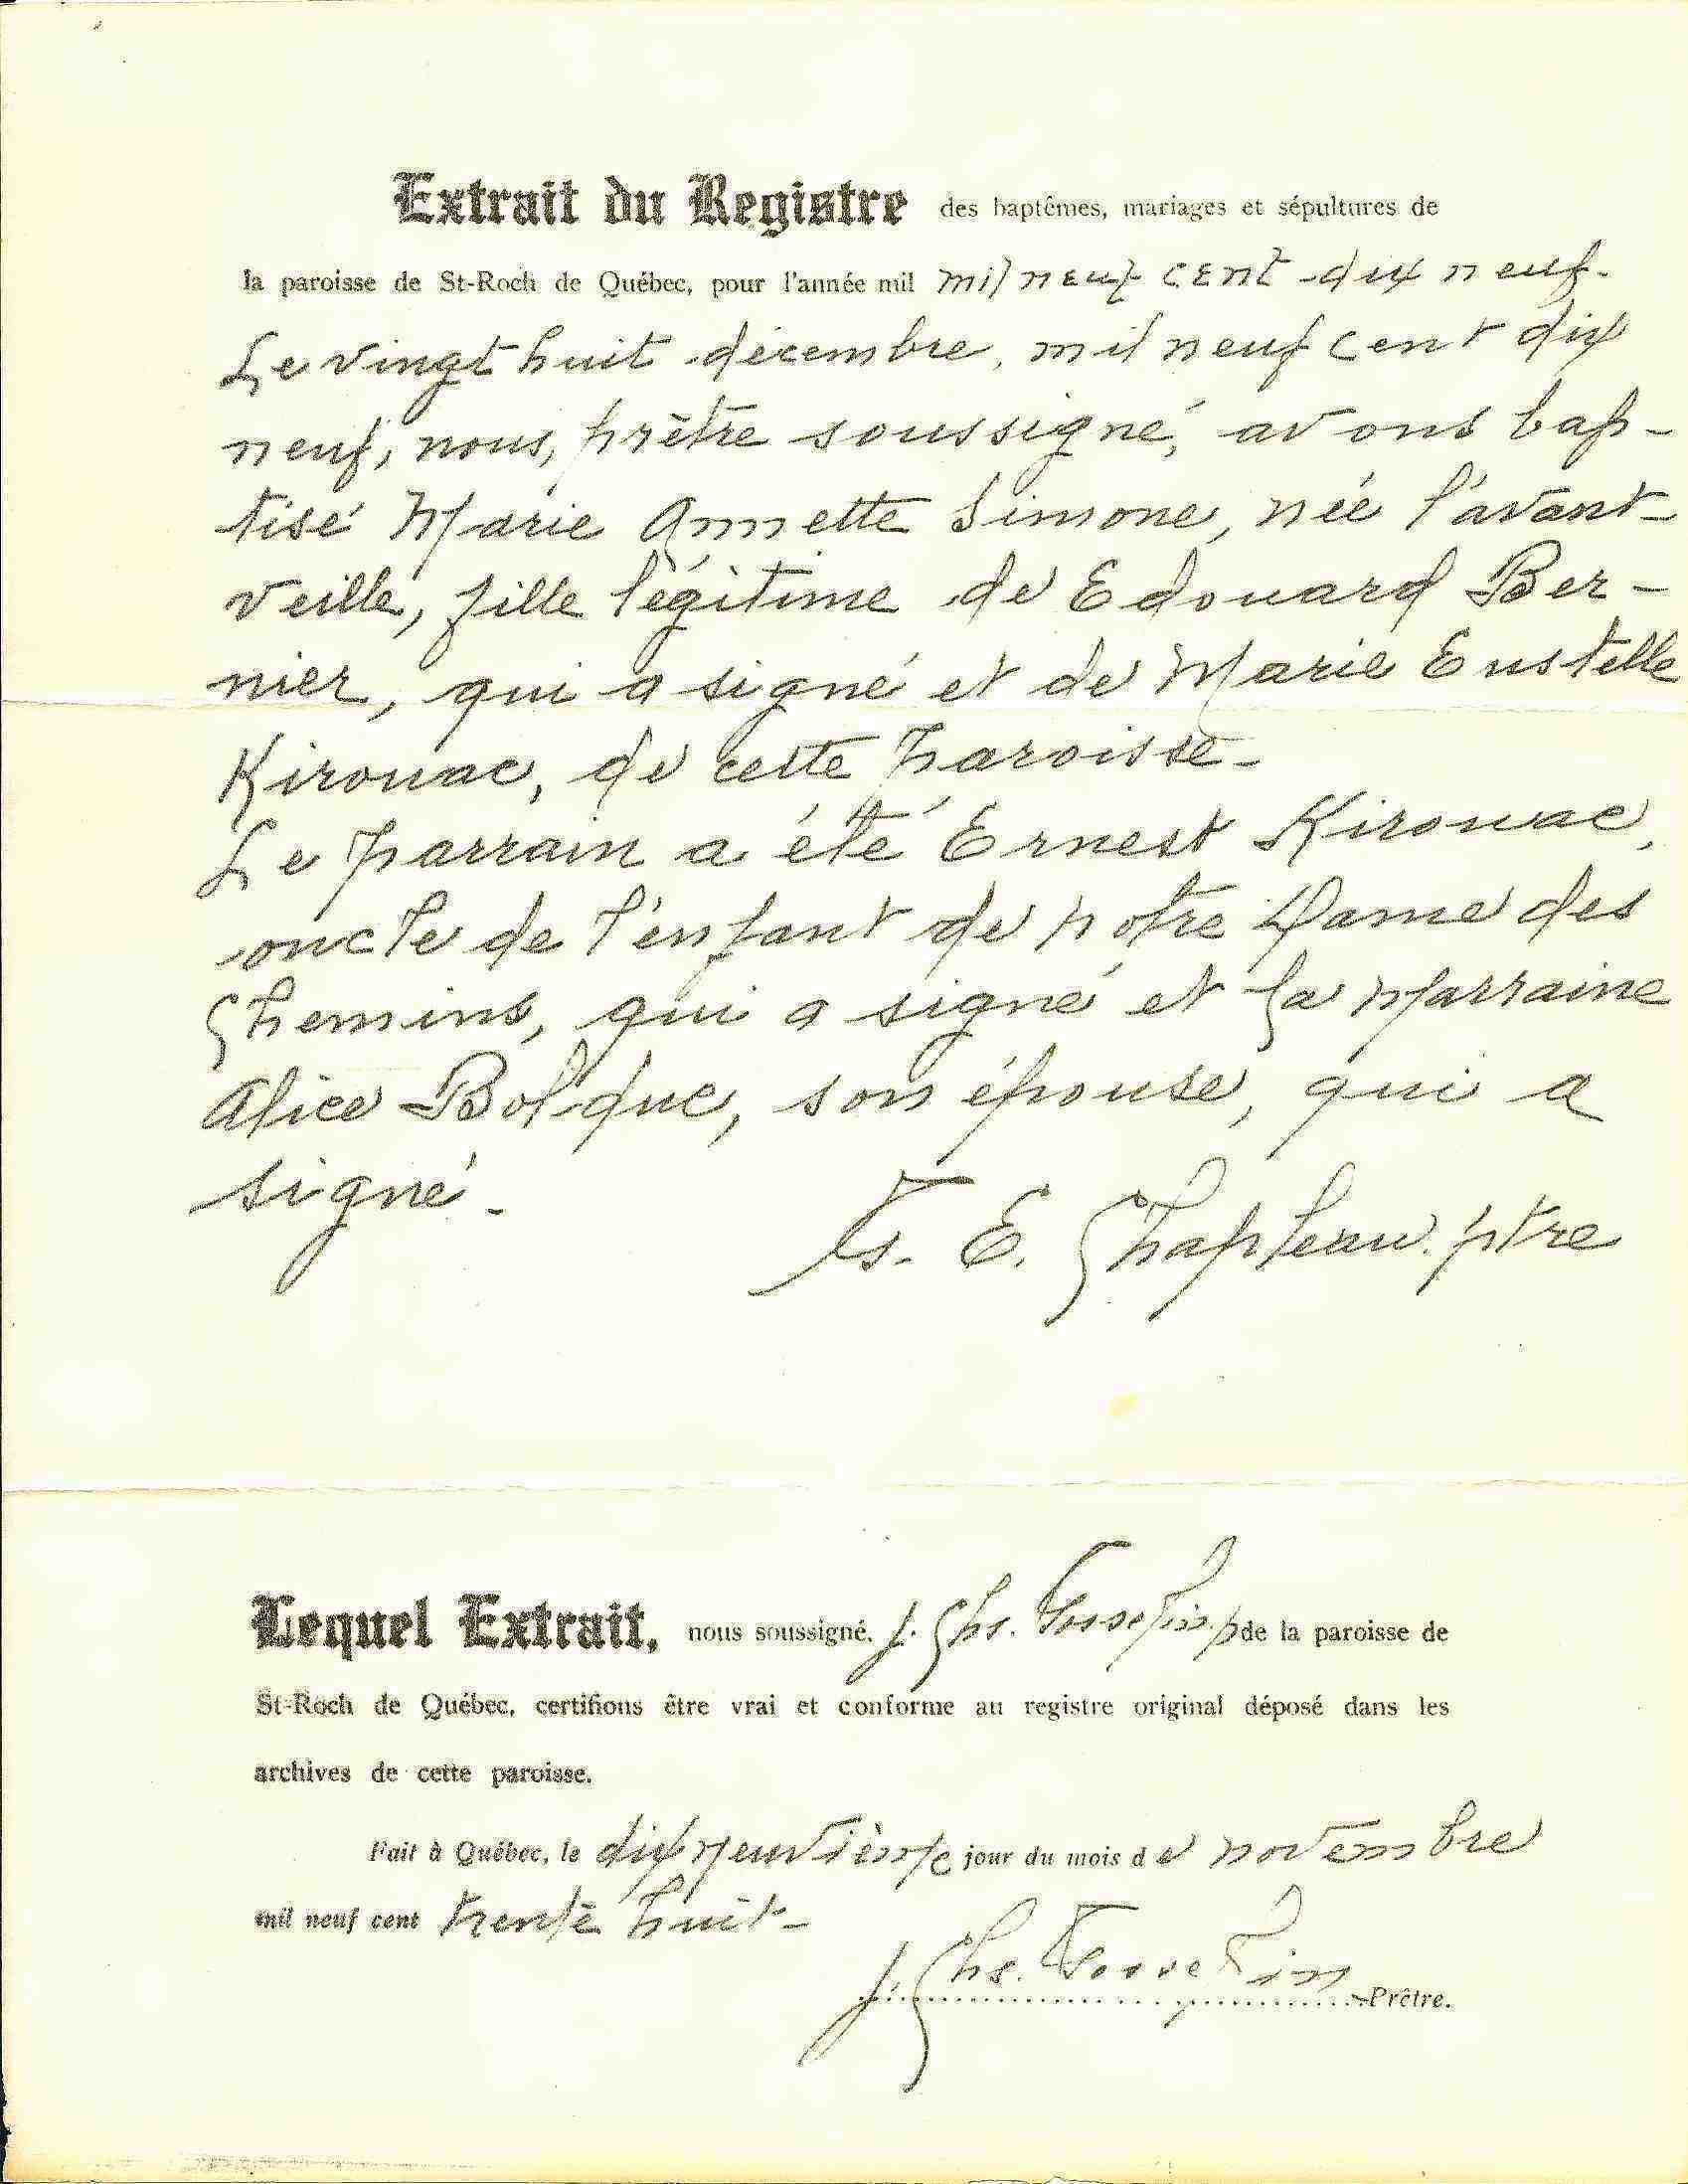 Extrait du Registre des baptêmes, mariages et sépultures de
la paroisse de St-Roch de Québec, pour l'année mil mil neuf cent dix neuf.
Le vingt huit décembre, mil neuf cent dix
neuf, nous, prêtre soussigné, avons bap-
tisé Marie Annette Simone, née l'avant-
veille, fille légitime de Edouard Ber-
nier, qui a signé et de Marie Eustelle
Kirouac, de cette paroisse-
Le parrain a été Ernest Kirouac,
oncle de l'enfant de Notre Dame des
Chemins, qui a signé et la Marraine
Alice Bolduc, son épouse, qui a
signé.
E. Chapleau. ptre
Lequel Extrait, nous soussigné, J. Chs. Gosselin p de la paroisse de
St-Roch de Québec, certifions être vrai et conforme au registre original déposé dans les
archives de cette paroisse.
Fait à Québec, le dix neuvième jour du mois de novembre
mil neuf cent trente huit-
J. Chs. Gosselin Prêtre.